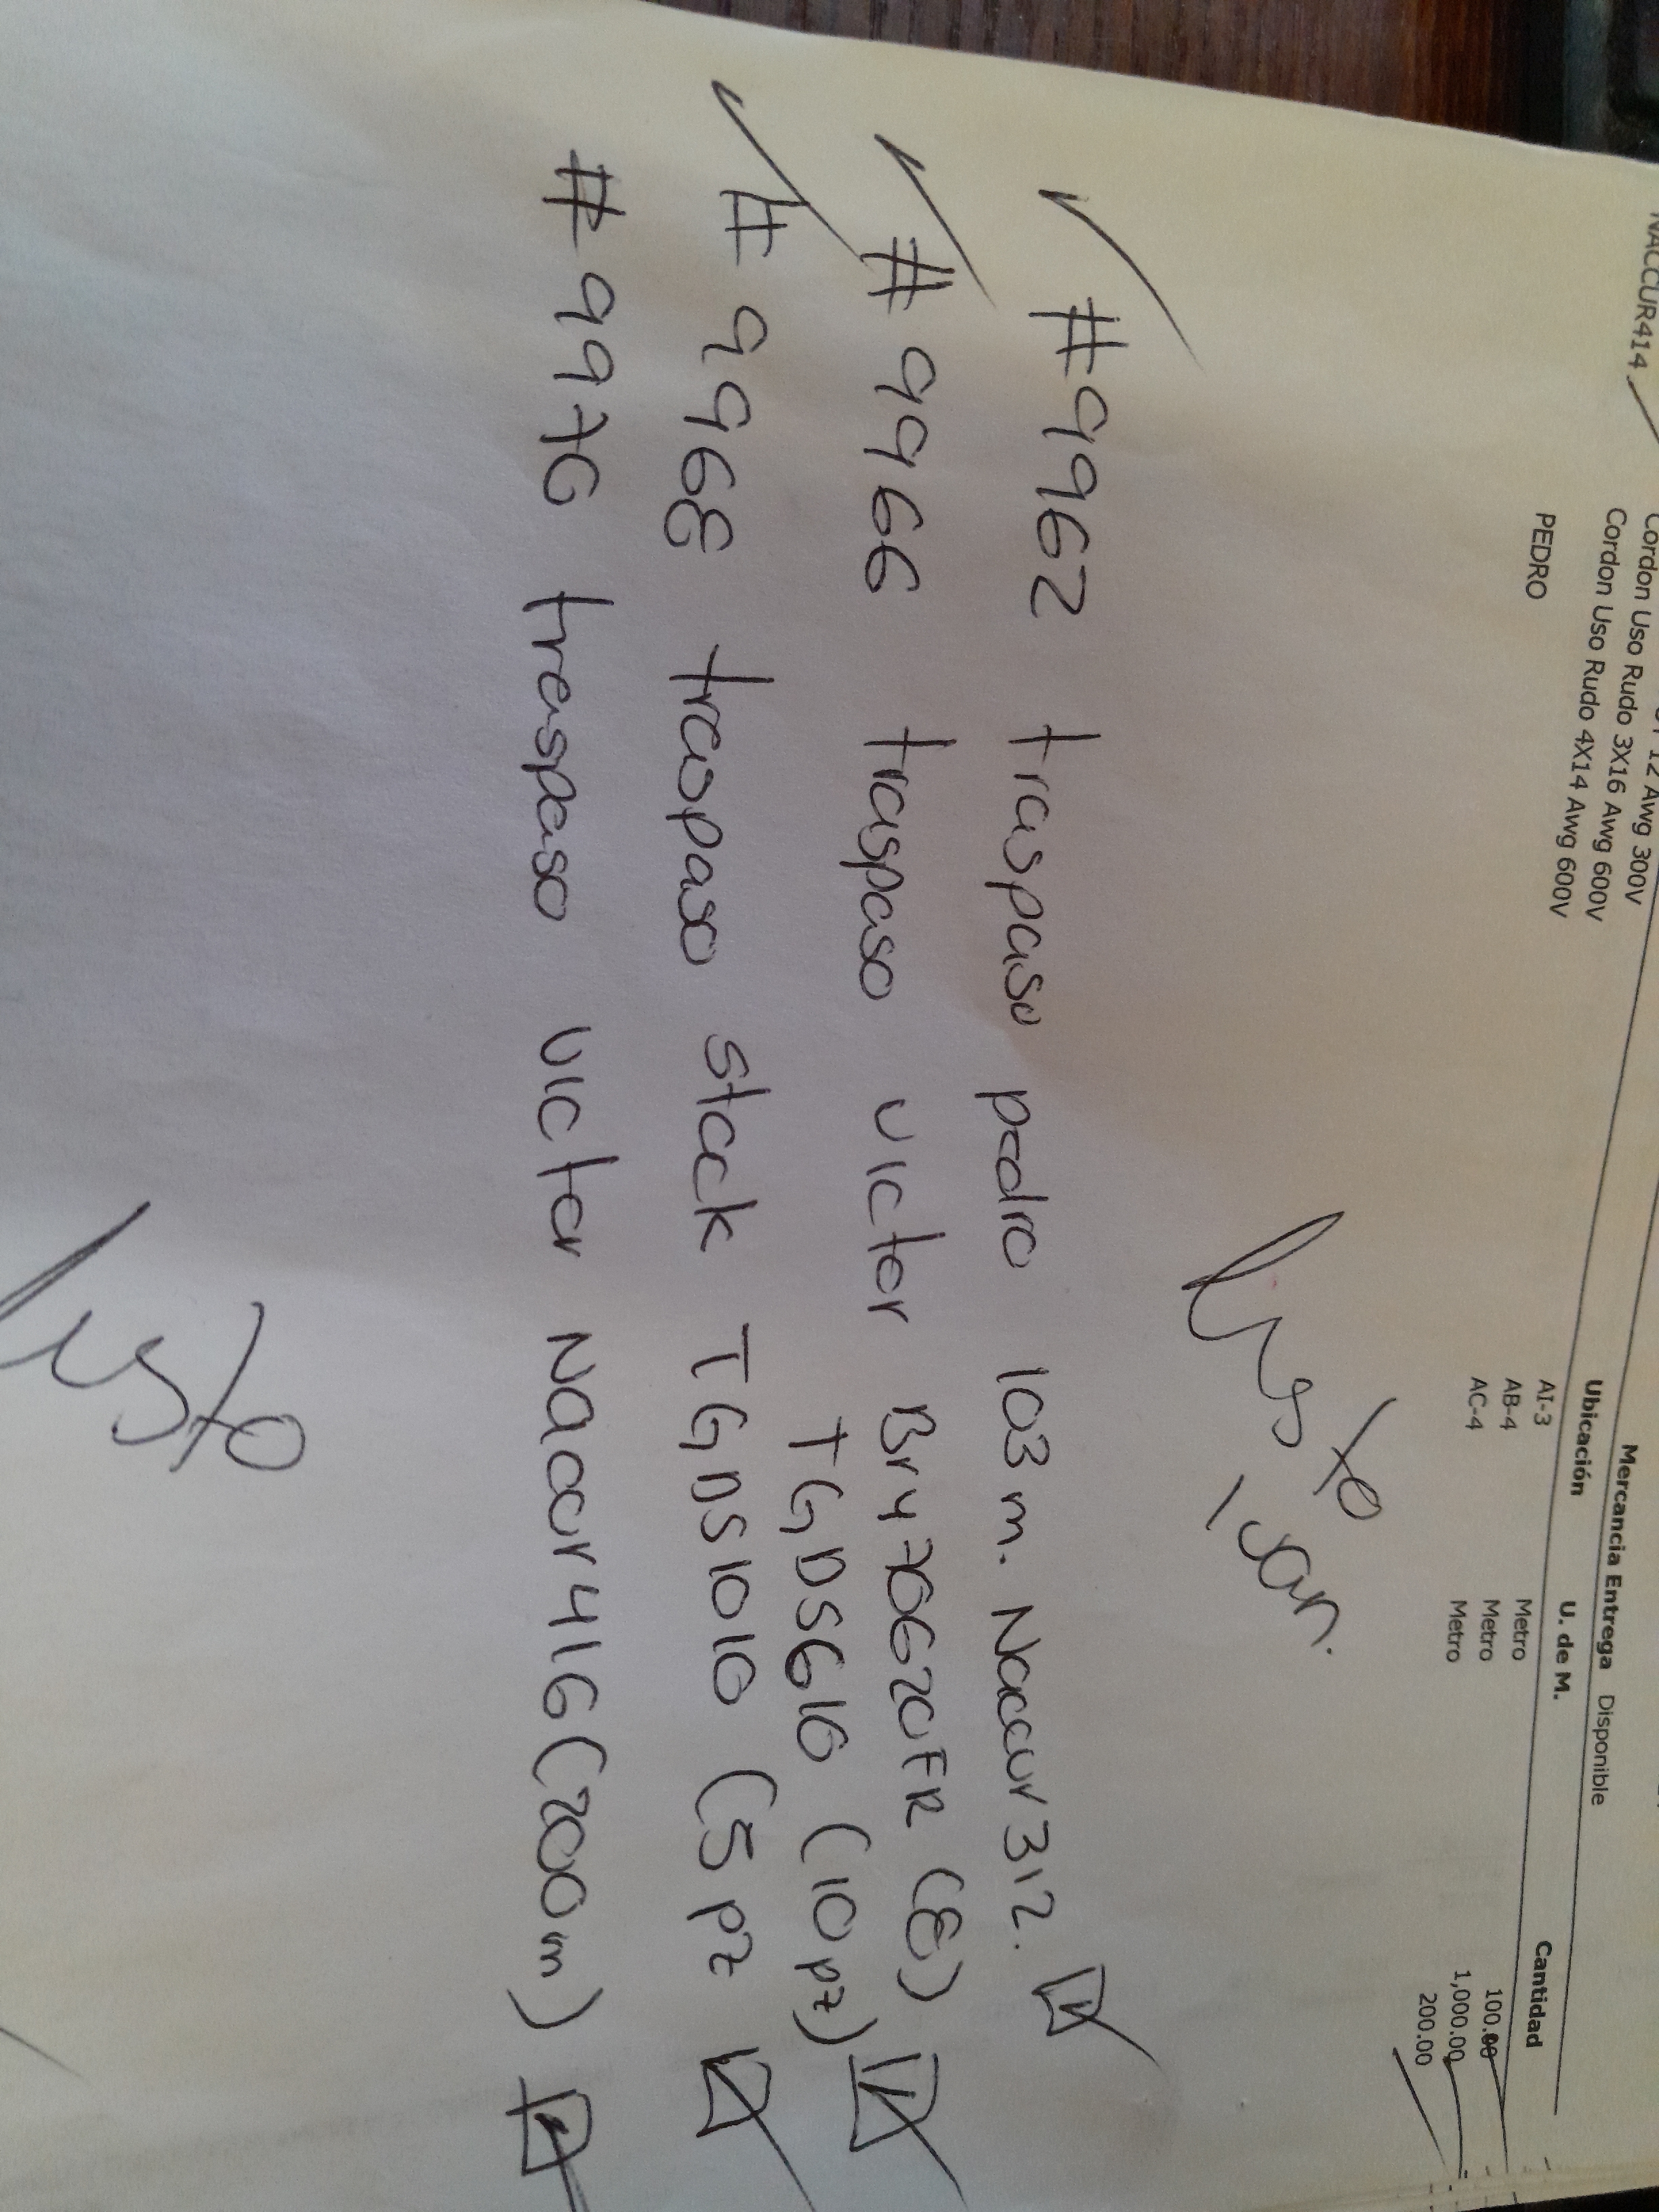 Mercancia Entrega Disponible
Ubicación U. de M. Cantidad
12 Awg 300V AI-3 Metro 100.00
Cordon Uso Rudo 3X16 Awg 600V AB-4 Metro 1,000.00
NACCUR414 Cordon Uso Rudo 4X14 Awg 600V AC-4 Metro 200.00
PEDRO
listo
Ivan.
#9962 traspaso pedro 103 m. Naccur312.
#9966 traspaso victor Br470620FR (8)
TGDS610 (10 pz)
#9968 traspaso stock TGDS1010 (5 pz
#9970 traspaso victor Naccur416 (200m)
listo